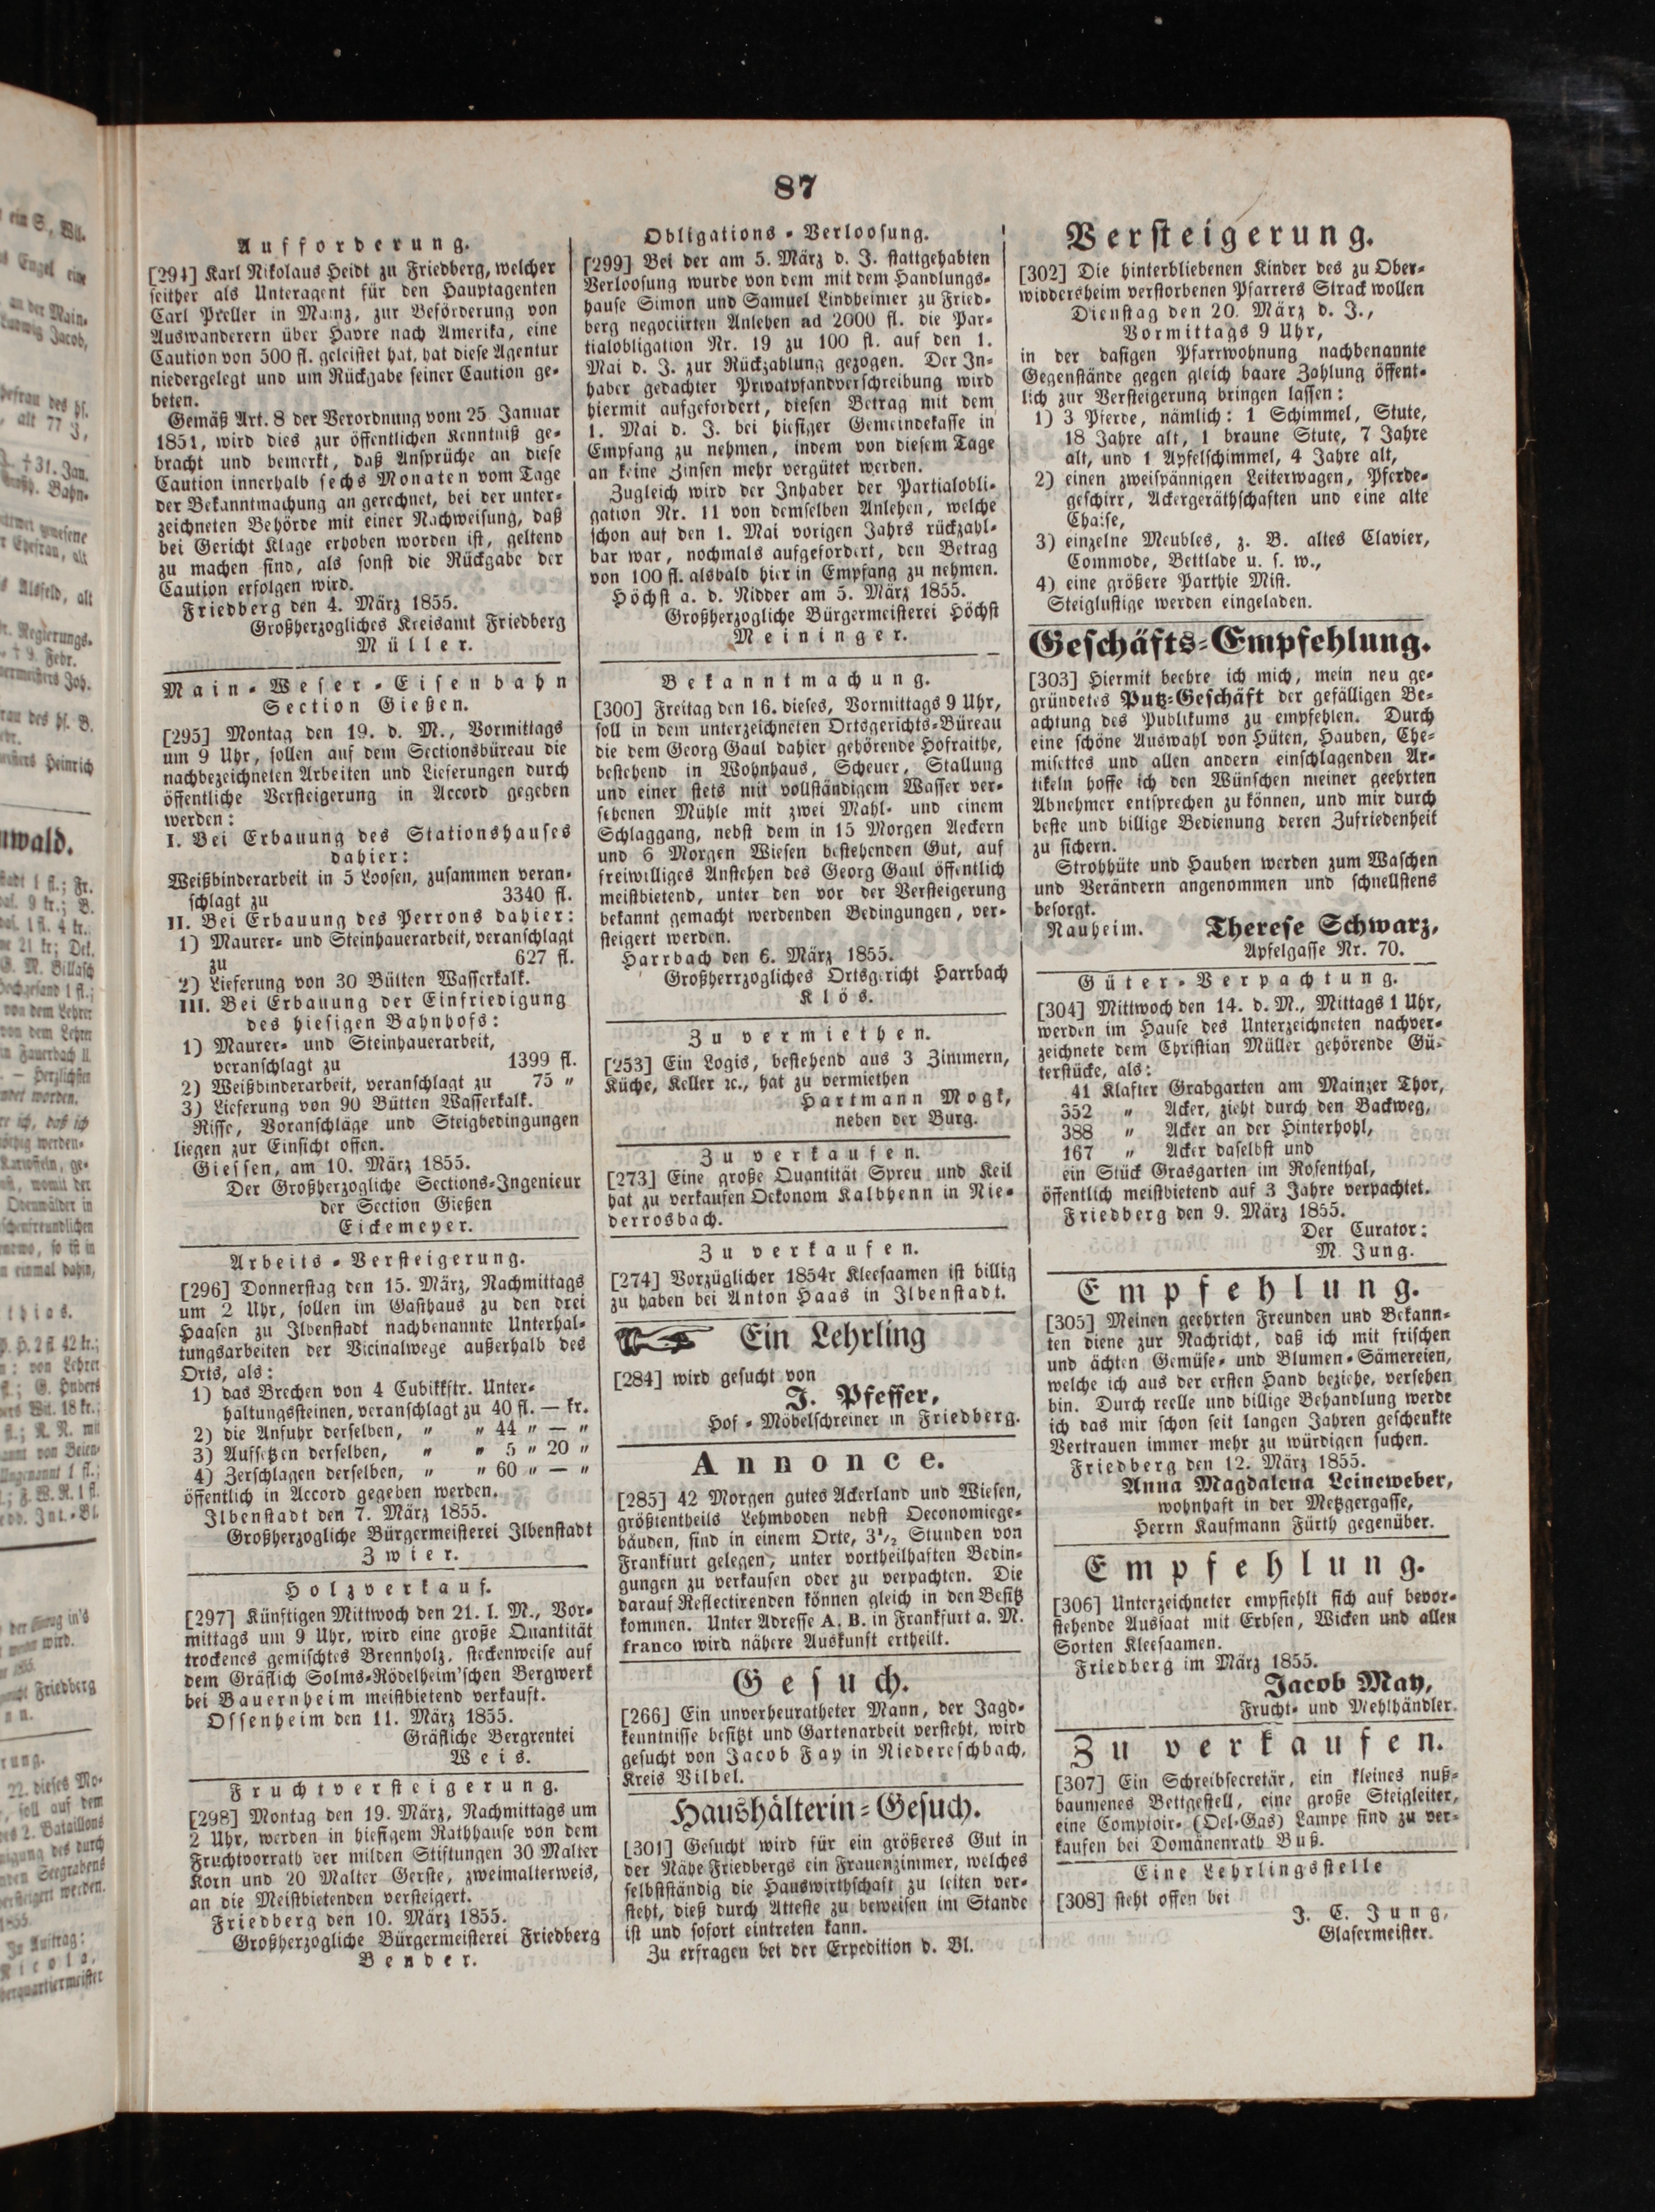 87
Aufforderung.
[294] Karl Nikolaus Heidt zu Friedberg, welcher
seither als Unteragent für den Hauptagenten
Carl Preller in Mainz, zur Beförderung von
Auswanderern über Havre nach Amerika, eine
Caution von 500 fl. geleistet hat, hat diese Agentur
niedergelegt und um Rückgabe seiner Caution ge-
beten.
Gemäß Art. 8 der Verordnung vom 25. Januar
1851, wird dies zur öffentlichen Kenntniß ge-
bracht und bemerkt, daß Ansprüche an diese
Caution innerhalb sechs Monaten vom Tage
der Bekanntmachung an gerechnet, bei der unter-
zeichneten Behörde mit einer Nachweisung, daß
bei Gericht Klage erhoben worden ist, geltend
zu machen sind, als sonst die Rückgabe der
Caution erfolgen wird.
Friedberg den 4. März 1855.
Großherzogliches Kreisamt Friedberg
Müller.
Main-Weser-Eisenbahn
Section Gießen.
[295] Montag den 19. d. M., Vormittags
um 9 Uhr, sollen auf dem Sectionsbüreau die
nachbezeichneten Arbeiten und Lieferungen durch
öffentliche Versteigerung in Accord gegeben
werden:
I. Bei Erbauung des Stationshauses
dahier:
Weißbinderarbeit in 5 Loosen, zusammen veran-
schlagt zu 3340 fl.
II. Bei Erbauung des Perrons dahier:
1) Maurer- und Steinhauerarbeit, veranschlagt
zu 627 fl.
2) Lieferung von 30 Bülten Wasserkalk.
III. Bei Erbauung der Einfriedigung
des hiesigen Bahnhofs:
1) Maurer- und Steinhauerarbeit,
veranschlagt zu 1399 fl.
2) Weißbinderarbeit, veranschlagt zu 75 "
3) Lieferung von 90 Bütten Wasserkalk.
Risse, Voranschläge und Steigbedingungen
liegen zur Einsicht offen.
Giessen, am 10. März 1855.
Der Großherzogliche Sections-Ingenieur
der Section Gießen
Eickemeyer.
Arbeits-Versteigerung.
[296] Donnerstag den 15. März, Nachmittags
um 2 Uhr, sollen im Gasthaus zu den drei
Haasen zu Ilbenstadt nachbenannte Unterhal-
tungsarbeiten der Vicinalwege außerhalb des
Orts, als:
1) das Brechen von 4 Cubikkftr. Unter-
haltungssteinen, veranschlagt zu 40 fl. — kr.
2) die Anfuhr derselben, " " 44 " — "
3) Aufsetzen derselben, " " 5 " 20 "
4) Zerschlagen derselben, " " 60 " — "
öffentlich in Accord gegeben werden.
Ilbenstadt den 7. März 1855.
Großherzogliche Bürgermeisterei Ilbenstadt
Zwier.
Holzverkauf.
[297] Künftigen Mittwoch den 21. l. M., Vor-
mittags um 9 Uhr, wird eine große Quantität
trockenes gemischtes Brennholz, steckenweise auf
dem Gräflich Solms-Rödelheim'schen Bergwerk
bei Bauernheim meistbietend verkauft.
Ossenheim den 11. März 1855.
Gräfliche Bergrentei
Weis.
Fruchtversteigerung.
[298] Montag den 19. März, Nachmittags um
2 Uhr, werden in hiesigem Rathhause von dem
Fruchtvorrath der milden Stiftungen 30 Malter
Korn und 20 Malter Gerste, zweimalterweis,
an die Meistbietenden versteigert.
Friedberg den 10. März 1855.
Großherzogliche Bürgermeisterei Friedberg
Bender.
Obligations-Verloosung.
[299] Bei der am 5. März d. J. stattgehabten
Verloosung wurde von dem mit dem Handlungs-
hause Simon und Samuel Lindheimer zu Fried-
berg negociirten Anlehen ad 2000 fl. die Par-
tialobligation Nr. 19 zu 100 fl. auf den 1.
Mai d. J. zur Rückzahlung gezogen. Der In-
haber gedachter Privatpfandverschreibung wird
hiermit aufgefordert, diesen Betrag mit dem
1. Mai d. J. bei hiesiger Gemeindekasse in
Empfang zu nehmen, indem von diesem Tage
an keine Zinsen mehr vergütet werden.
Zugleich wird der Inhaber der Partialobli-
gation Nr. 11 von demselben Anlehen, welche
schon auf den 1. Mai vorigen Jahrs rückzahl-
bar war, nochmals aufgefordert, den Betrag
von 100 fl. alsbald hier in Empfang zu nehmen.
Höchst a. d. Nidder am 5. März 1855.
Großherzogliche Bürgermeisterei Höchst
Meininger.
Bekanntmachung.
[300] Freitag den 16. dieses, Vormittags 9 Uhr,
soll in dem unterzeichneten Ortsgerichts-Büreau
die dem Georg Gaul dahier gehörende Hofraithe,
bestehend in Wohnhaus, Scheuer, Stallung
und einer stets mit vollständigem Wasser ver-
sehenen Mühle mit zwei Mahl- und einem
Schlaggang, nebst dem in 15 Morgen Aeckern
und 6 Morgen Wiesen bestehenden Gut, auf
freiwilliges Anstehen des Georg Gaul öffentlich
meistbietend, unter den vor der Versteigerung
bekannt gemacht werdenden Bedingungen, ver-
steigert werden.
Harrbach den 6. März 1855.
Großherrzogliches Ortsgericht Harrbach
Klös.
Zu vermiethen.
[253] Ein Logis, bestehend aus 3 Zimmern,
Küche, Keller ꝛc., hat zu vermiethen
Hartmann Mogk,
neben der Burg.
Zu verkaufen.
[273] Eine große Quantität Spreu und Keil
hat zu verkaufen Oekonom Kalbhenn in Nie-
derrosbach.
Zu verkaufen.
[274] Vorzüglicher 1854r Kleesaamen ist billig
zu haben bei Anton Haas in Ilbenstadt.
Ein Lehrling
[284] wird gesucht von
J. Pfeffer,
Hof-Möbelschreiner in Friedberg.
Annonce.
[285] 42 Morgen gutes Ackerland und Wiesen,
größtentheils Lehmboden nebst Oeconomiege-
bäuden, sind in einem Orte, 3½ Stunden von
Frankfurt gelegen, unter vortheilhaften Bedin-
gungen zu verkaufen oder zu verpachten. Die
darauf Reflectirenden können gleich in den Besitz
kommen. Unter Adresse A. B. in Frankfurt a. M.
franco wird nähere Auskunft ertheilt.
Gesuch.
[266] Ein unverheuratheter Mann, der Jagd-
kenntnisse besitzt und Gartenarbeit versteht, wird
gesucht von Jacob Fay in Niedereschbach,
Kreis Vilbel.
Haushälterin-Gesuch.
[301] Gesucht wird für ein größeres Gut in
der Nähe Friedbergs ein Frauenzimmer, welches
selbstständig die Hauswirthschaft zu leiten ver-
steht, dieß durch Atteste zu beweisen im Stande
ist und sofort eintreten kann.
Zu erfragen bei der Expedition d. Bl.
Versteigerung.
[302] Die hinterbliebenen Kinder des zu Ober-
widdersheim verstorbenen Pfarrers Strack wollen
Dienstag den 20. März d. J.,
Vormittags 9 Uhr,
in der dasigen Pfarrwohnung nachbenannte
Gegenstände gegen gleich baare Zahlung öffent-
lich zur Versteigerung bringen lassen:
1) 3 Pferde, nämlich: 1 Schimmel, Stute,
18 Jahre alt, 1 braune Stute, 7 Jahre
alt, und 1 Apfelschimmel, 4 Jahre alt,
2) einen zweispännigen Leiterwagen, Pferde-
geschirr, Ackergeräthschaften und eine alte
Chaise,
3) einzelne Meubles, z. B. altes Clavier,
Commode, Bettlade u. s. w.,
4) eine größere Parthie Mist.
Steiglustige werden eingeladen.
Geschäfts-Empfehlung.
[303] Hiermit beehre ich mich, mein neu ge-
gründetes Putz-Geschäft der gefälligen Be-
achtung des Publikums zu empfehlen. Durch
eine schöne Auswahl von Hüten, Hauben, Che-
misettes und allen andern einschlagenden Ar-
tikeln hoffe ich den Wünschen meiner geehrten
Abnehmer entsprechen zu können, und mir durch
beste und billige Bedienung deren Zufriedenheit
zu sichern.
Strohhüte und Hauben werden zum Waschen
und Verändern angenommen und schnellstens
besorgt.
Nauheim. Therese Schwarz,
Apfelgasse Nr. 70.
Güter-Verpachtung.
[304] Mittwoch den 14. d. M., Mittags 1 Uhr,
werden im Hause des Unterzeichneten nachver-
zeichnete dem Christian Müller gehörende Gü-
terstücke, als:
41 Klafter Grabgarten am Mainzer Thor,
352 " Acker, zieht durch den Backweg,
388 " Acker an der Hinterhohl,
167 " Acker daselbst und
ein Stück Grasgarten im Rosenthal,
öffentlich meistbietend auf 3 Jahre verpachtet.
Friedberg den 9. März 1855.
Der Curator:
M. Jung.
Empfehlung.
[305] Meinen geehrten Freunden und Bekann-
ten diene zur Nachricht, daß ich mit frischen
und ächten Gemüse- und Blumen-Sämereien,
welche ich aus der ersten Hand beziehe, versehen
bin. Durch reelle und billige Behandlung werde
ich das mir schon seit langen Jahren geschenkte
Vertrauen immer mehr zu würdigen suchen.
Friedberg den 12. März 1855.
Anna Magdalena Leineweber,
wohnhaft in der Metzgergasse,
Herrn Kaufmann Fürth gegenüber.
Empfehlung.
[306] Unterzeichneter empfiehlt sich auf bevor-
stehende Aussaat mit Erbsen, Wicken und allen
Sorten Kleesaamen.
Friedberg im März 1855.
Jacob May,
Frucht- und Mehlhändler.
Zu verkaufen.
[307] Ein Schreibsecretär, ein kleines nuß-
baumenes Bettgestell, eine große Steigleiter,
eine Comptoir-(Oel-Gas) Lampe sind zu ver-
kaufen bei Domänenrath Buß.
Eine Lehrlingsstelle
[308] steht offen bei
J. C. Jung,
Glasermeister.